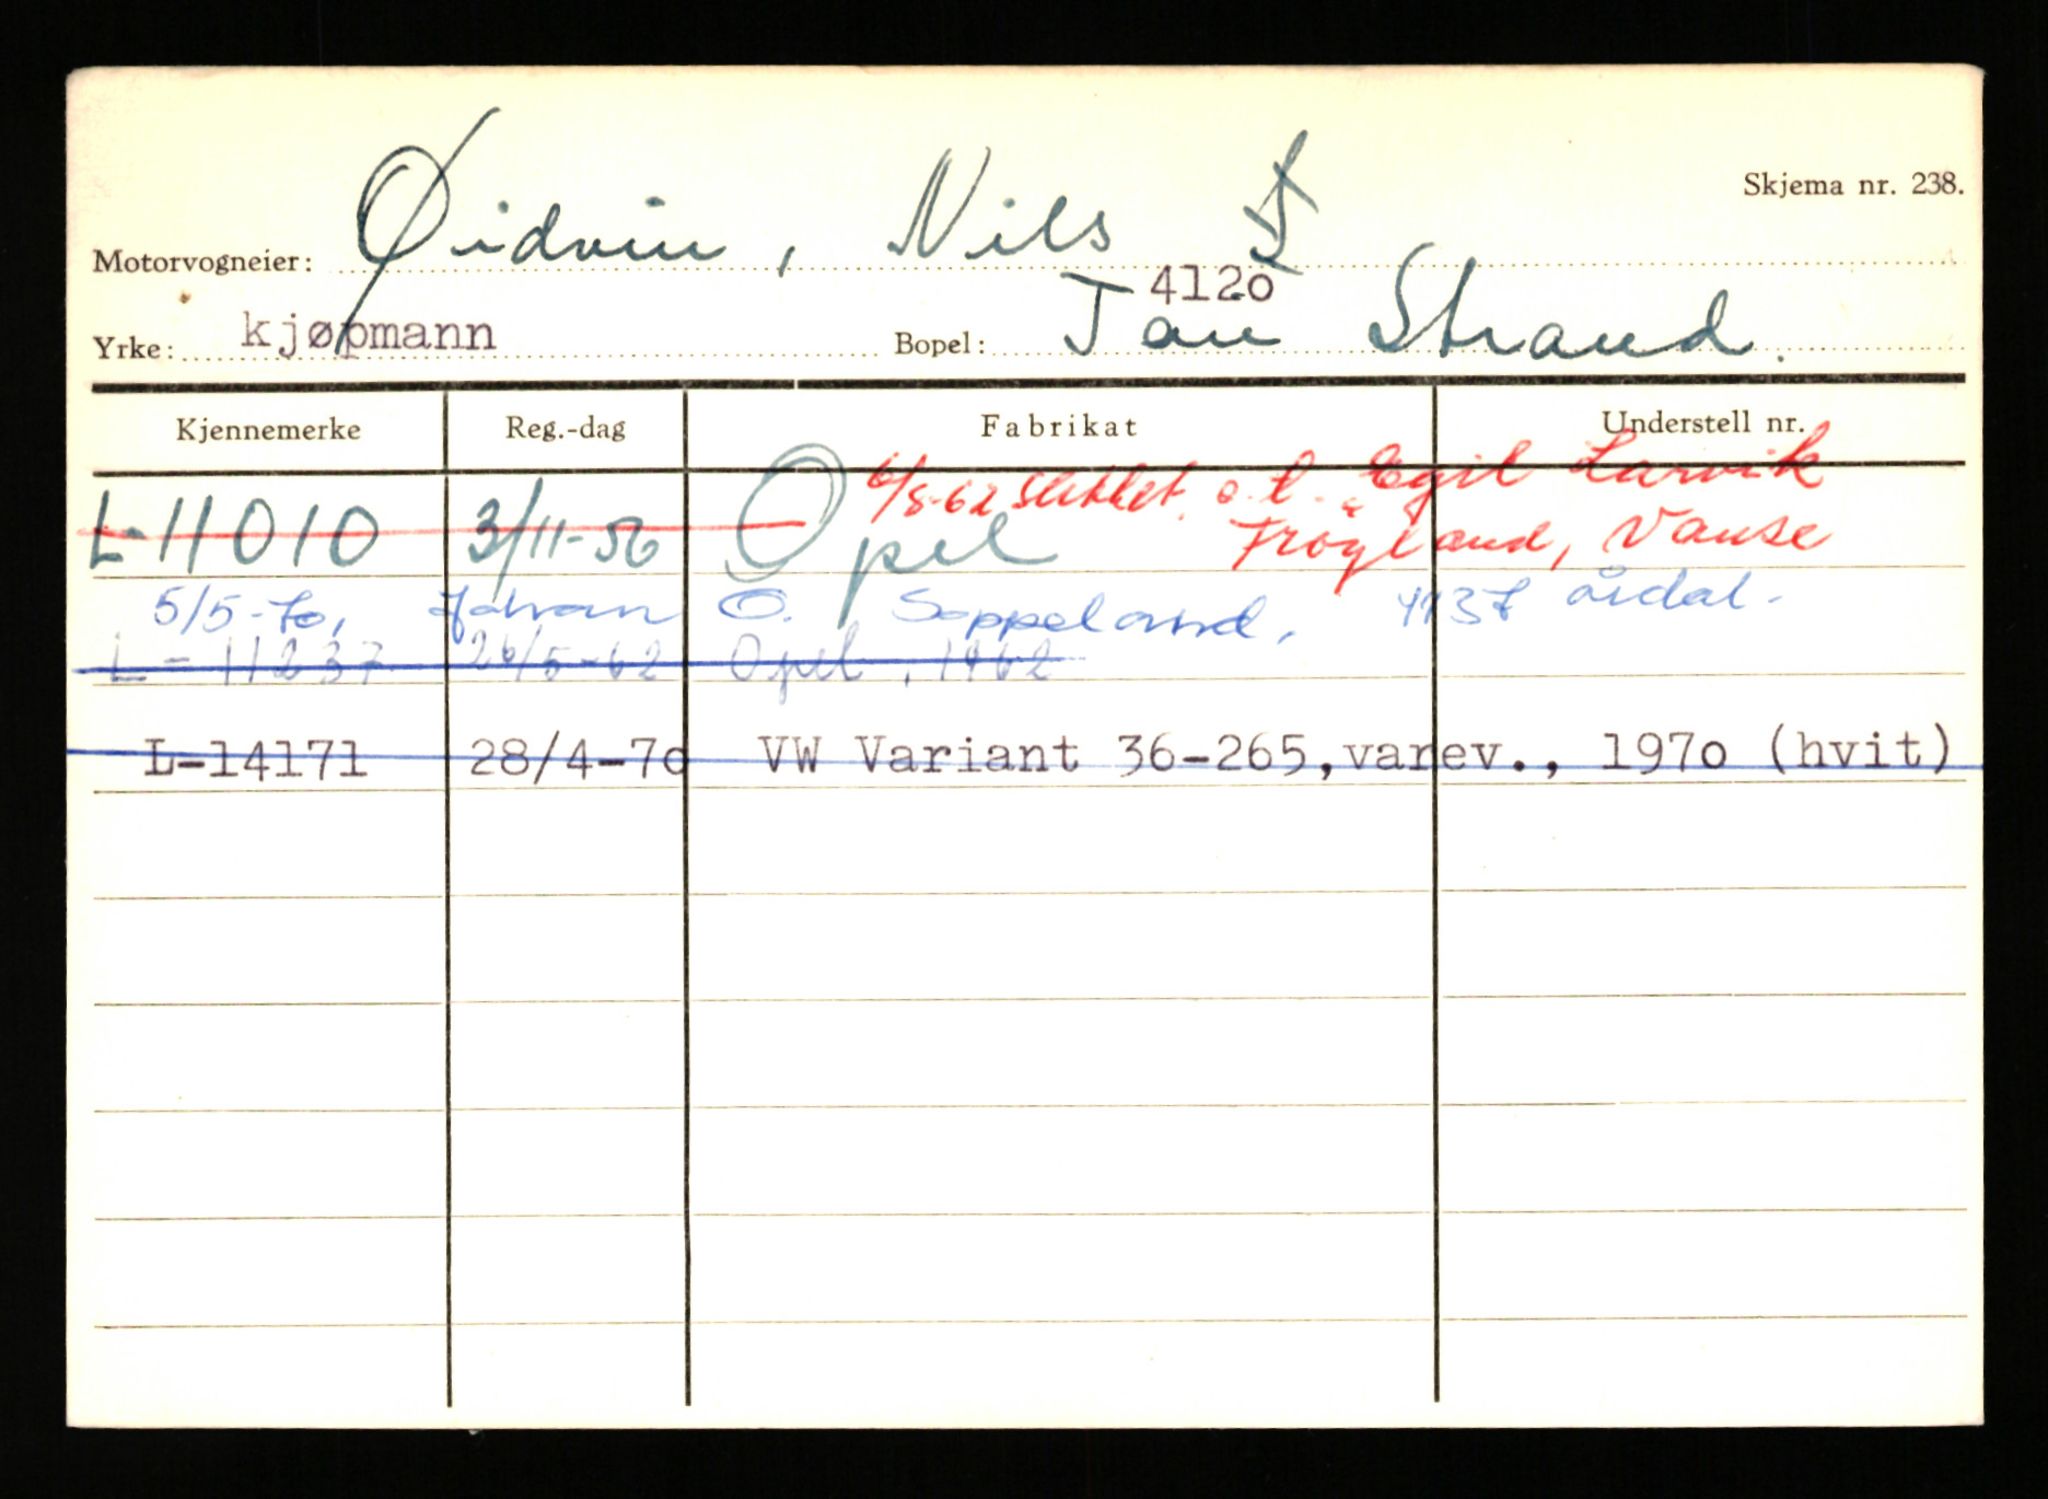 Skjema nr. 238.
Motorvogneier: Øidvin, Nils
4120
Yrke: kjøpmann Bopel: Tau Strand.
Kjennemerke Reg.-dag Fabrikat Understell nr.
6/8-62 slettet. o.t. Egil Larvik
L-11010 3/11-56 Opel Frøyland, Vanse
5/5-70, Johan O. Soppeland, 4137 årdal.
L-11237 26/5-62 Opel, 1962
L-14171 28/4-7o VW Variant 36-265,varev., 197o (hvit)